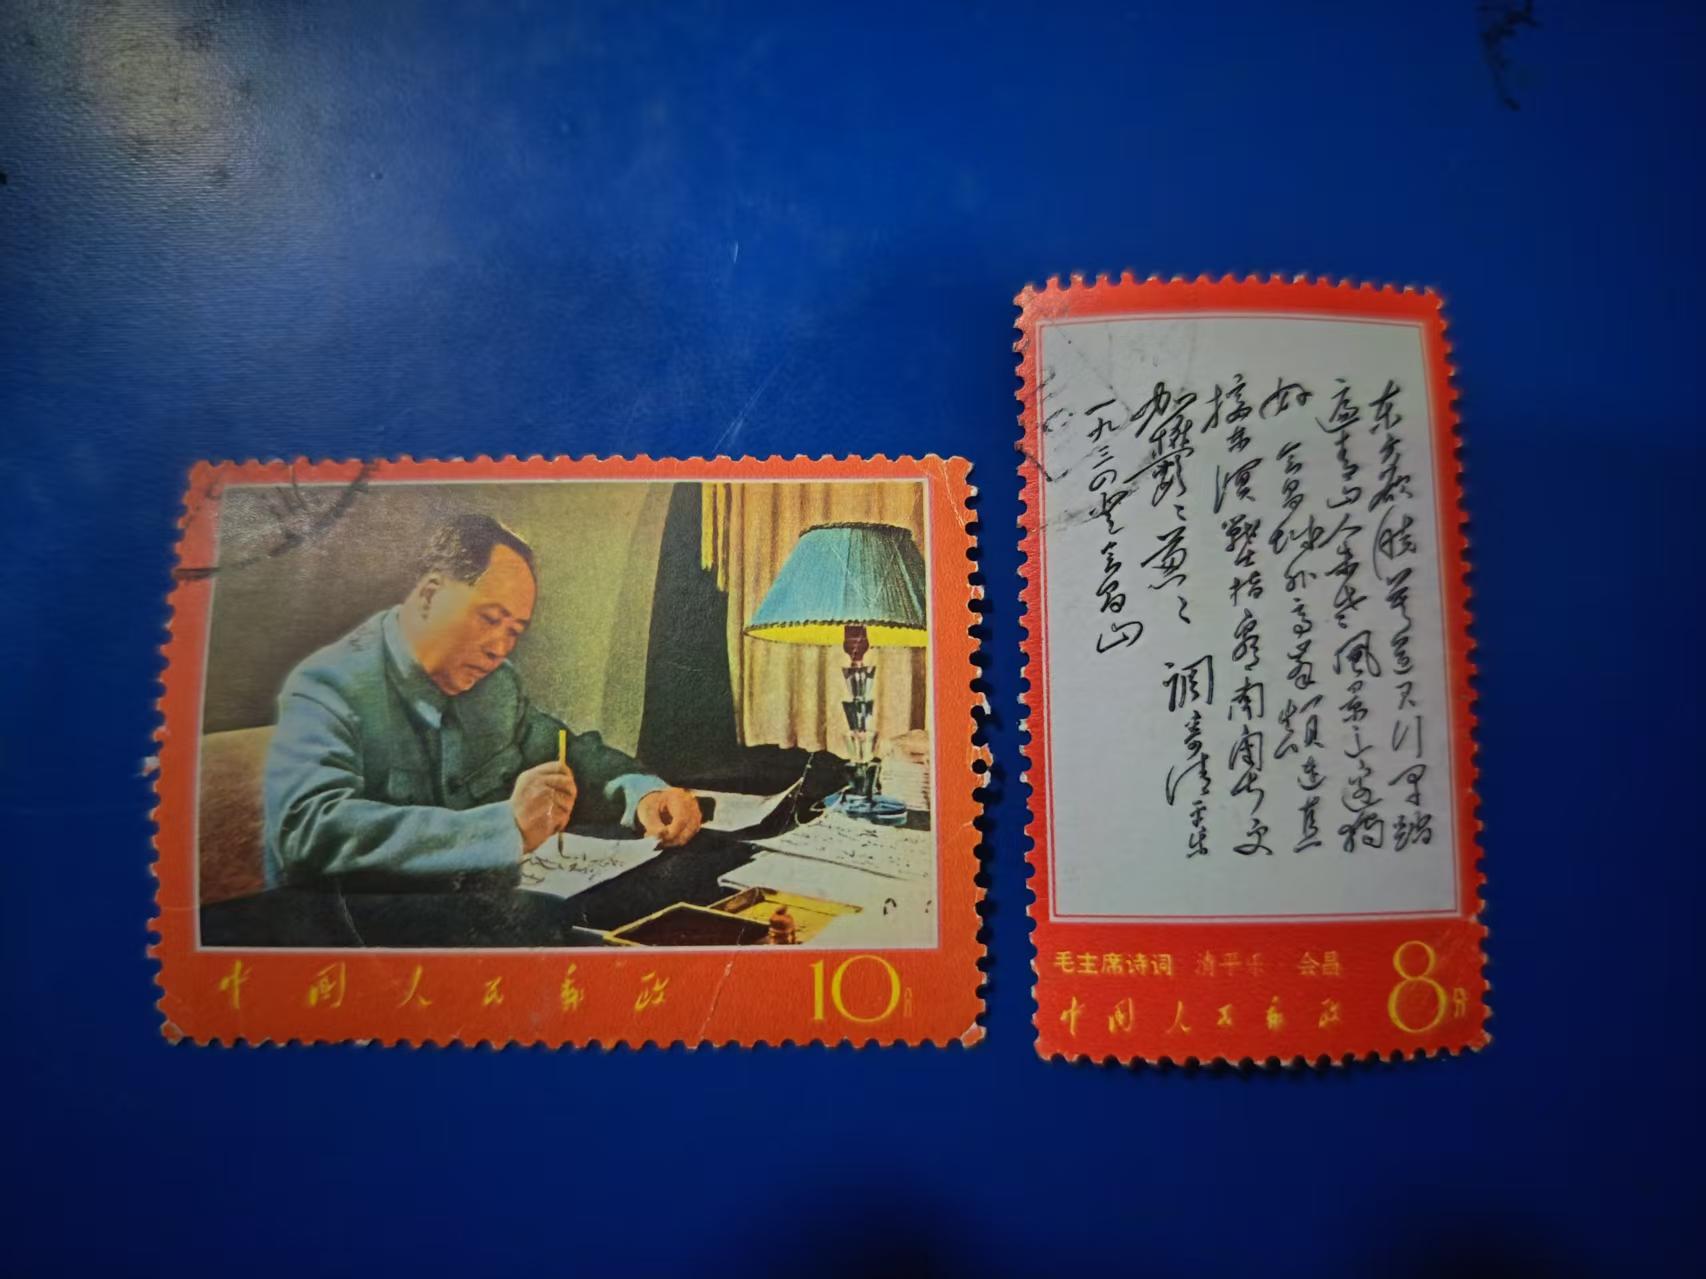 中国人民邮政 10分
东方欲晓莫道君行早踏
遍青山人未老風景这边独
好 会昌城外高峯顛连直
接东溟戰士指看南粤更
加欝〻葱〻 調寄清平乐
一九三四登会昌山
毛主席诗词 清平乐 会昌
中国人民邮政 8分